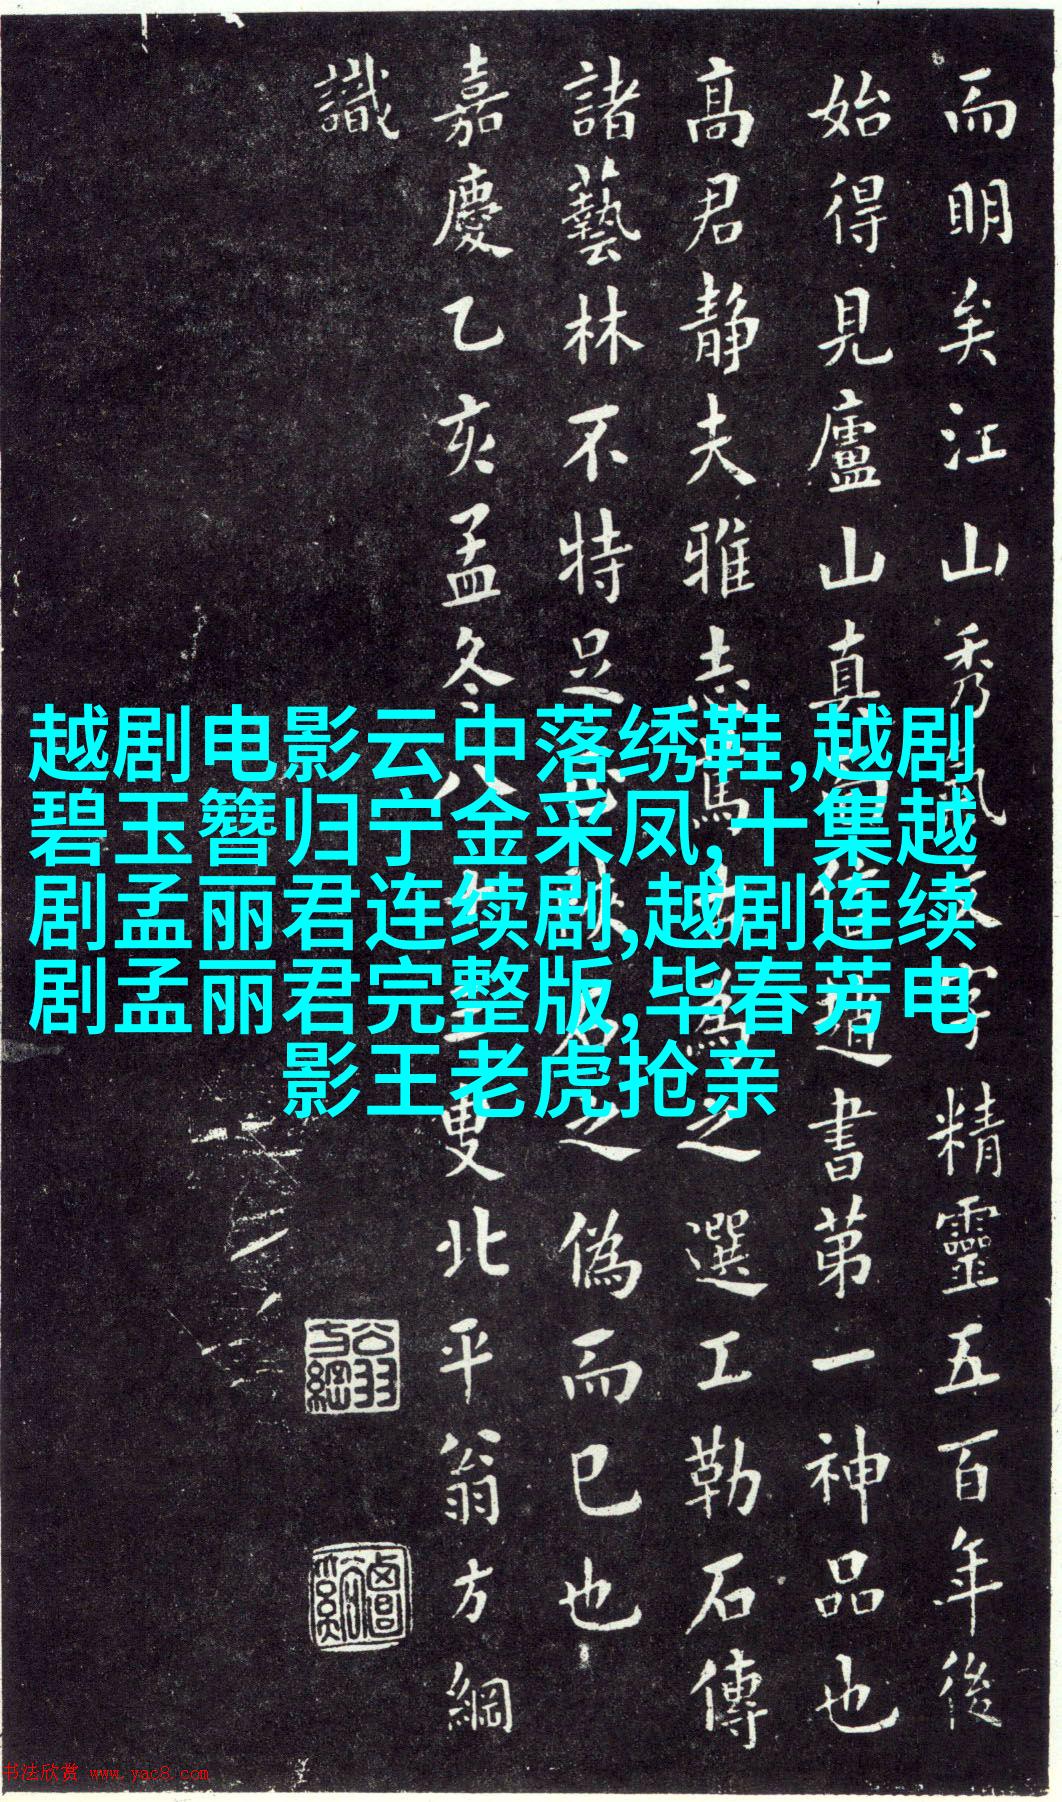 而明矣江山秀氣文字精靈五百年後
始得見廬山真書第一神品也
高君静夫雅志篤為之選工勒石傳
諸藝林不特足名之偽而已也
嘉慶乙亥孟冬八叟北平翁方綱
識
翁方綱
越剧电影云中落绣鞋,越剧
碧玉簪归宁金采凤,十集越
剧孟丽君连续剧,越剧连续
剧孟丽君完整版,毕春芳电
影王老虎抢亲
书法欣赏 www.yac8.com